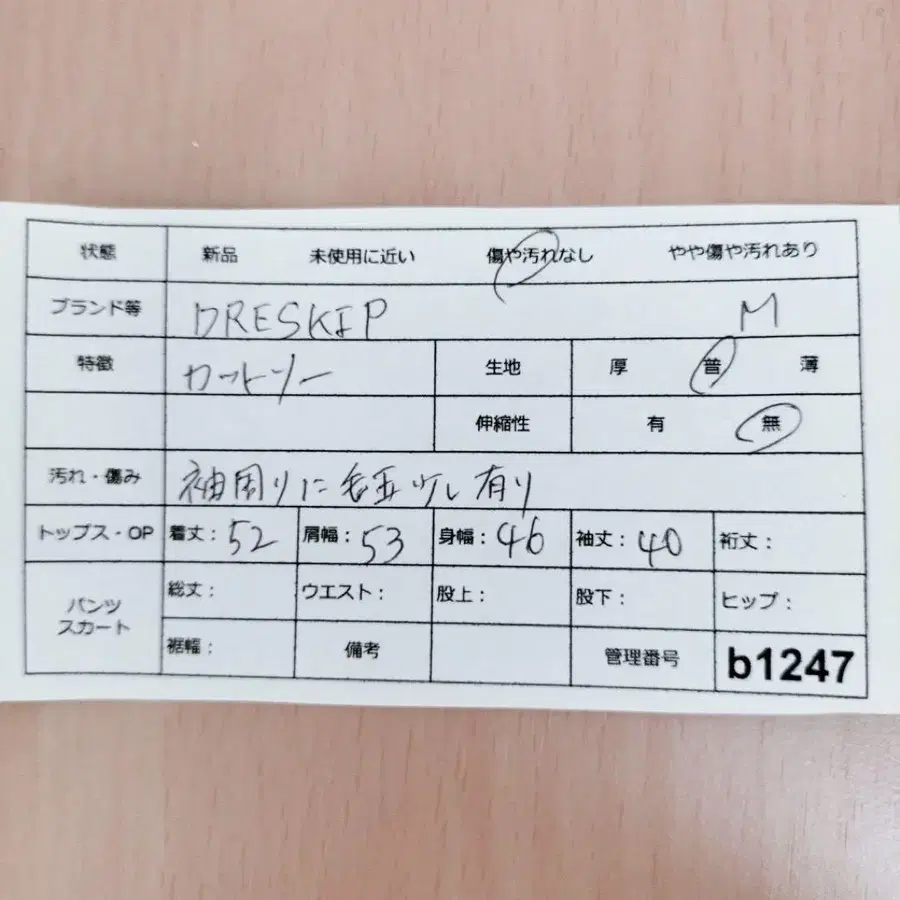 状態 新品 未使用に近い 傷や汚れなし やや傷や汚れあり
ブランド等 DRESKIP M
特徴 カットソー 生地 厚 普 薄
伸縮性 有 無
汚れ・傷み 袖周りに毛玉少し有り
トップス・OP 着丈: 52 肩幅: 53 身幅: 46 袖丈: 40 裄丈:
パンツ スカート 総丈: ウエスト: 股上: 股下: ヒップ:
裾幅: 備考 管理番号 b1247